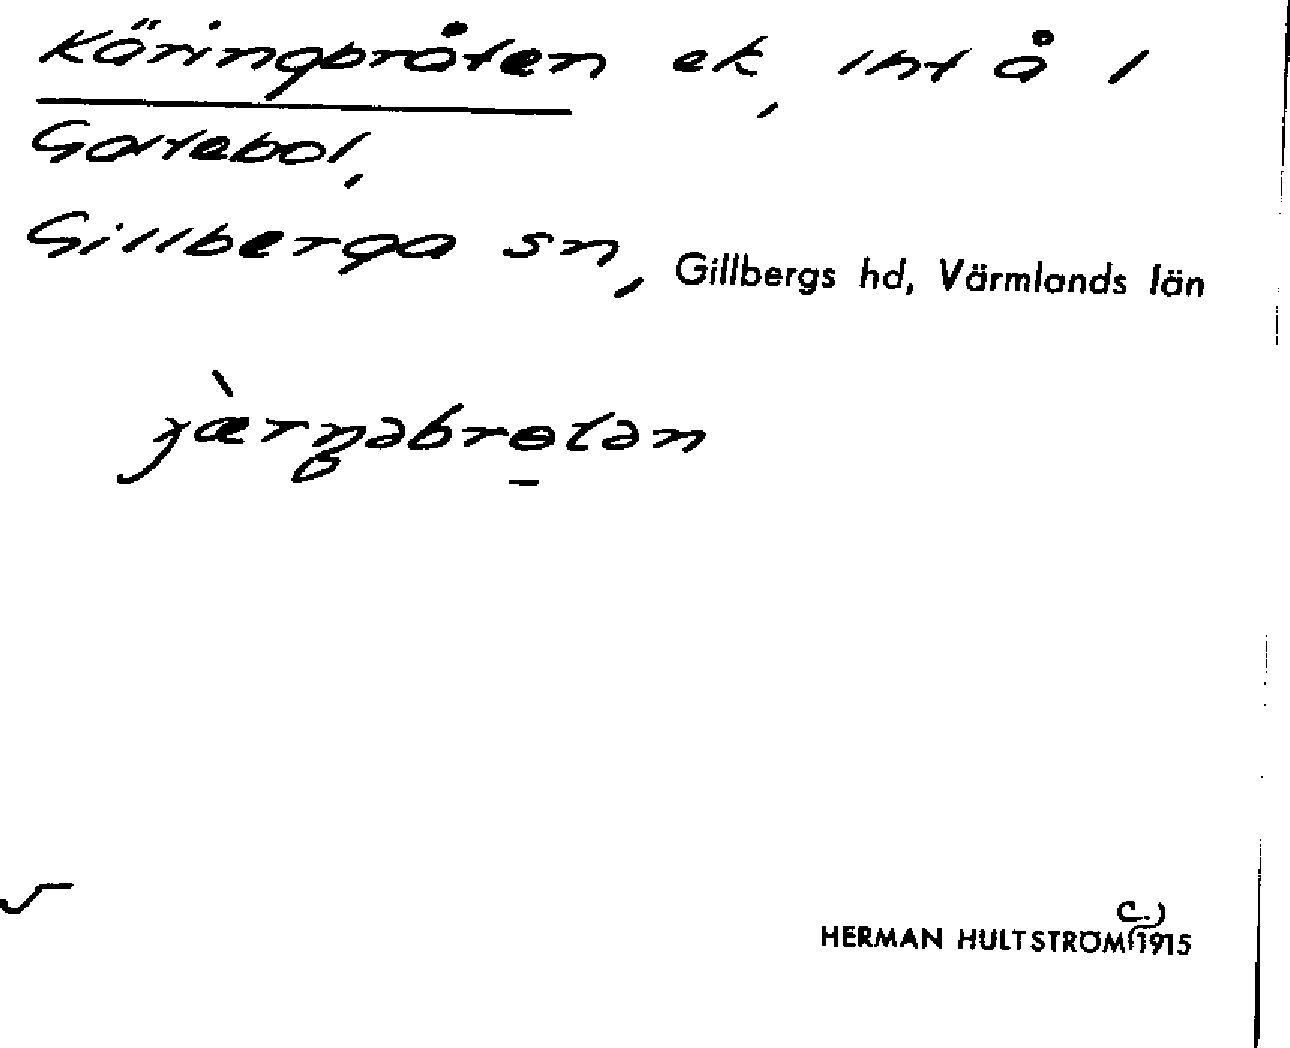 Käringbråten ek, int å 1
Galtebol,
Gillberga sn, Gillbergs hd, Värmlands län
HERMAN HULTSTRÖM (c.) 1915